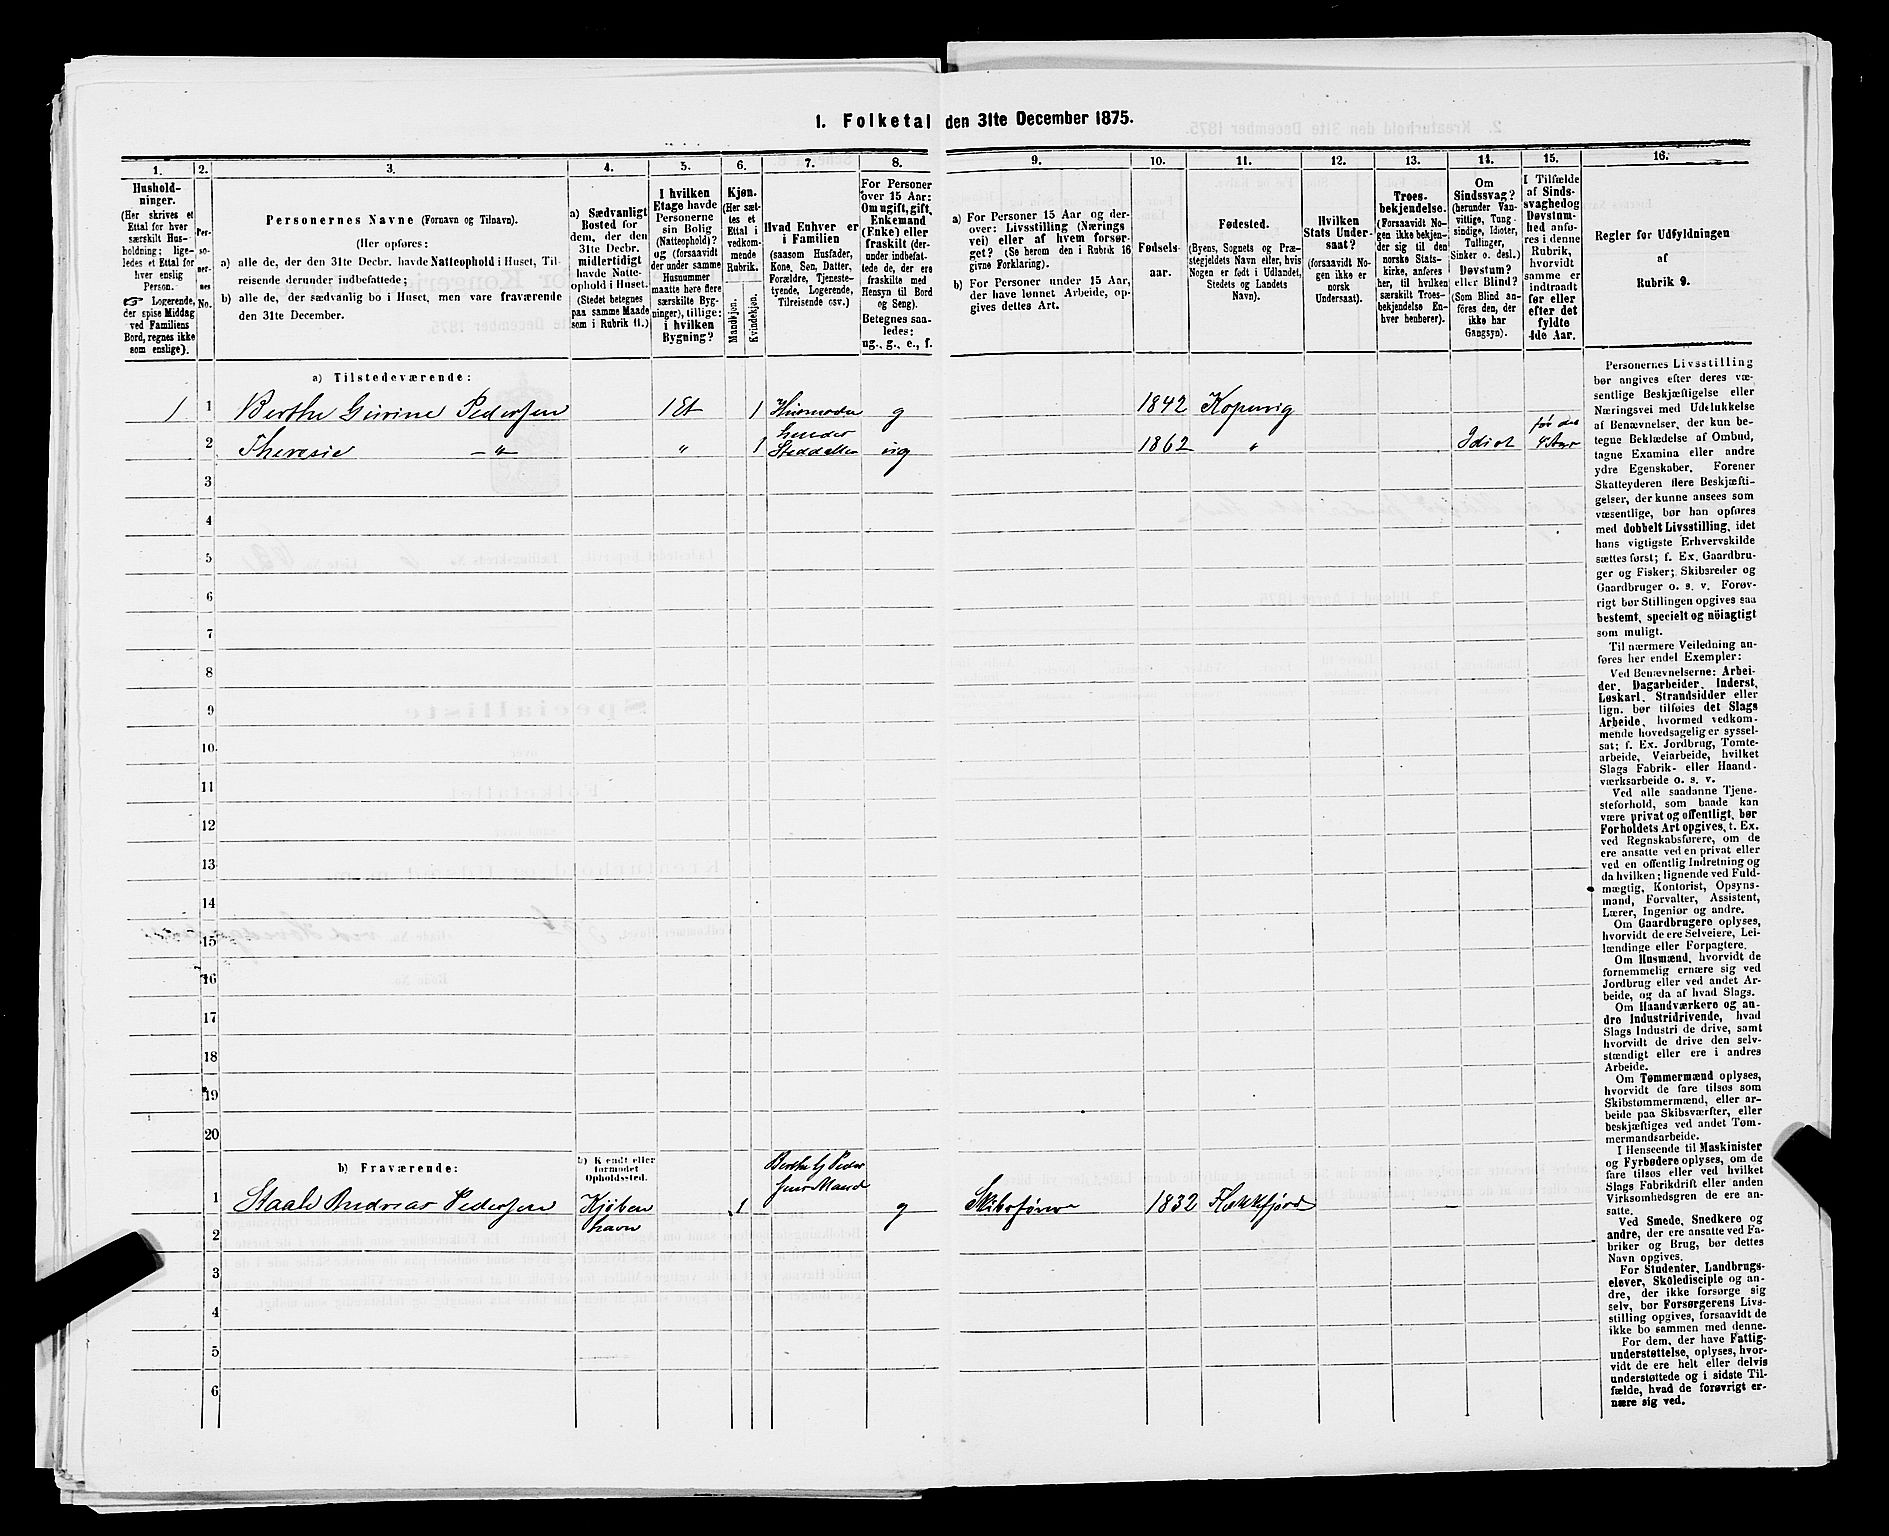 1. Folketal den 31te December 1875.
1. 2. 3. 4. 5. 6. 7. 8. 9. 10. 11. 12. 13. 14. 15. 16.
Hushold-
ninger.
(Her skrives et
Ettal for hver
særskilt Hus-
holdning; lige-
ledes et Ettal for
hver enslig
Person.
☞ Logerende,
der spise Middag
ved Familiens
Bord, regnes ikke
som enslige).
Per-
so-
ner-
nes
No.
Personernes Navne (Fornavn og Tilnavn).
(Her opføres:
a) alle de, der den 31te Decbr. havde Natteophold i Huset, Til-
reisende derunder indbefattede;
b) alle de, der sædvanlig bo i Huset, men vare fraværende
den 31te December.
a) Sædvanligt
Bosted for
dem, der den
31te Decbr.
midlertidigt
havde Natte-
ophold i Huset.
(Stedet betegnes
paa samme Maade
som i Rubrik 11.)
I hvilken
Etage havde
Personerne
sin Bolig
(Natteophold)?
og (forsaavidt
der under samme
Husnummer
maatte høre flere
særskilte Byg-
ninger), tillige:
i hvilken
Bygning?
Kjøn.
(Her sæt-
tes et
Ettal i
vedkom-
mende
Rubrik.
Mandkjøn.
Kvindekjøn.
Hvad Enhver er
i Familien
(saasom Husfader,
Kone, Søn, Datter,
Forældre, Tjeneste-
tyende, Logerende,
Tilreisende osv.)
For Personer
over 15 Aar:
Om ugift, gift,
Enkemand
(Enke) eller
fraskilt (der-
under indbefat-
tede de, der ere
fraskilte med
Hensyn til Bord
og Seng).
Betegnes saa-
ledes:
ug., g., e., f.
a) For Personer 15 Aar og der-
over: Livsstilling (Nærings
vei) eller af hvem forsør-
get? (Se herom den i Rubrik 16
givne Forklaring).
b) For Personer under 15 Aar,
der have lønnet Arbeide, op-
gives dettes Art.
Fødsels-
aar.
Fødested.
(Byens, Sognets og Præ-
stegjeldets Navn eller, hvis
Nogen er født i Udlandet,
Stedets og Landets
Navn).
Hvilken
Stats Under-
saat?
(forsaavidt No-
gen ikke er
norsk
Undersaat).
Troes-
bekjendelse.
(Forsaavidt No-
gen ikke bekjen-
der sig til den
norske Stats-
kirke, anføres
her, til hvilken
særskilt Troes-
bekjendelse En-
hver henhører).
Om
Sindssvag?
(herunder Van-
vittige, Tung-
sindige, Idioter,
Tullinger,
Sinker o. desl.)
Døvstum?
eller Blind?
(Som Blind an-
føres den, der
ikke har
Gangsyn).
I Tilfælde
af Sinds-
svaghed og
Døvstum-
hed anfø-
res i denne
Rubrik,
hvorvidt
samme er
indtraadt
før eller
efter det
fyldte
4de Aar.
Regler for Udfyldningen
af
Rubrik 9.
a) Tilstedeværende:
1 1 Berthe Gurine Pedersen 1 Et 1 Husmoder g 1842 Kopervig
2 Theresie —"— " 1 Steddatter ug 1862 " Idiot 4 Aar
3
4
5
6
7
8
9
10
11
12
13
14
15
16
17
18
19
20
b) Fraværende:
b) Kendt eller
formodet
Opholdssted.
Berthe G Peder
sens Mand
1 Staale Andreas Pedersen Kjøben 1 g Skibsfører 1832 Flekkefjord
2 havn
3
4
5
6
Personernes Livsstilling
bør angives efter deres væ-
sentlige Beskjæftigelse eller
Næringsvei med Udelukkelse
af Benævnelser, der kun be-
tegne Beklædelse af Ombud,
tagne Examina eller andre
ydre Egenskaber. Forener
Skatteyderen flere Beskjæfti-
gelser, der kunne ansees som
væsentlige, bør han opføres
med dobbelt Livsstilling, idet
hans vigtigste Erhvervskilde
sættes først; f. Ex. Gaardbru-
ger og Fisker; Skibsreder og
Gaardbruger o. s. v. Forøv-
rigt bør Stillingen opgives saa
bestemt, specielt og nöiagtigt
som muligt.
Til nærmere Veiledning an-
føres her endel Exempler:
Ved Benævnelserne: Arbei-
der, Dagarbeider, Inderst,
Løskarl, Strandsidder eller
lign. bør tilføies det Slags
Arbeide, hvormed vedkom-
mende hovedsagelig er syssel-
sat; f. Ex. Jordbrug, Tomte-
arbeide, Veiarbeide, hvilket
Slags Fabrik- eller Haand-
værksarbeide o. s. v.
Ved alle saadanne Tjene-
steforhold, som baade kan
være privat og offentligt, bør
Forholdets Art opgives, t. Ex.
ved Regnskabsførere, om de
ere ansatte ved en privat eller
ved en offentlig Indretning og
da hvilken; lignende ved Fuld-
mægtig, Kontorist, Opsyns-
mand, Forvalter, Assistent,
Lærer, Ingeniør og andre.
Om Gaardbrugere oplyses,
hvorvidt de ere Selveiere, Lei-
lændinge eller Forpagtere.
Om Husmænd, hvorvidt de
fornemmelig ernære sig ved
Jordbrug eller ved andet Ar-
beide, og da af hvad Slags.
Om Haandværkere og an-
dre Industridrivende, hvad
Slags Industri de drive, samt
hvorvidt de drive den selv-
stændigt eller ere i andres
Arbeide.
Om Tømmermænd oplyses,
hvorvidt de fare tilsøs som
Skibstømmermænd, eller ar-
beide paa Skibsværfter, eller
beskjæftiges ved andet Tøm-
mermandsarbeide.
I Henseende til Maskinister
og Fyrbødere oplyses, om de
fare tilsøs eller ved hvilket
Slags Fabrikdrift eller anden
Virksomhedsgren de ere an-
satte.
Ved Smede, Snedkere og
andre, der ere ansatte ved Fa-
briker og Brug, bør dettes
Navn opgives.
For Studenter, Landbrugs-
elever, Skoledisciple og an-
dre, der ikke forsørge sig
selv, bør Forsørgerens Livs-
stilling opgives, forsaavidt de
ikke bo sammen med denne.
For dem, der have Fattig-
understøttelse, oplyses, hvor-
vidt de ere helt eller delvis
understøttede og i sidste Til-
fælde, hvad de forøvrigt er-
nære sig ved.